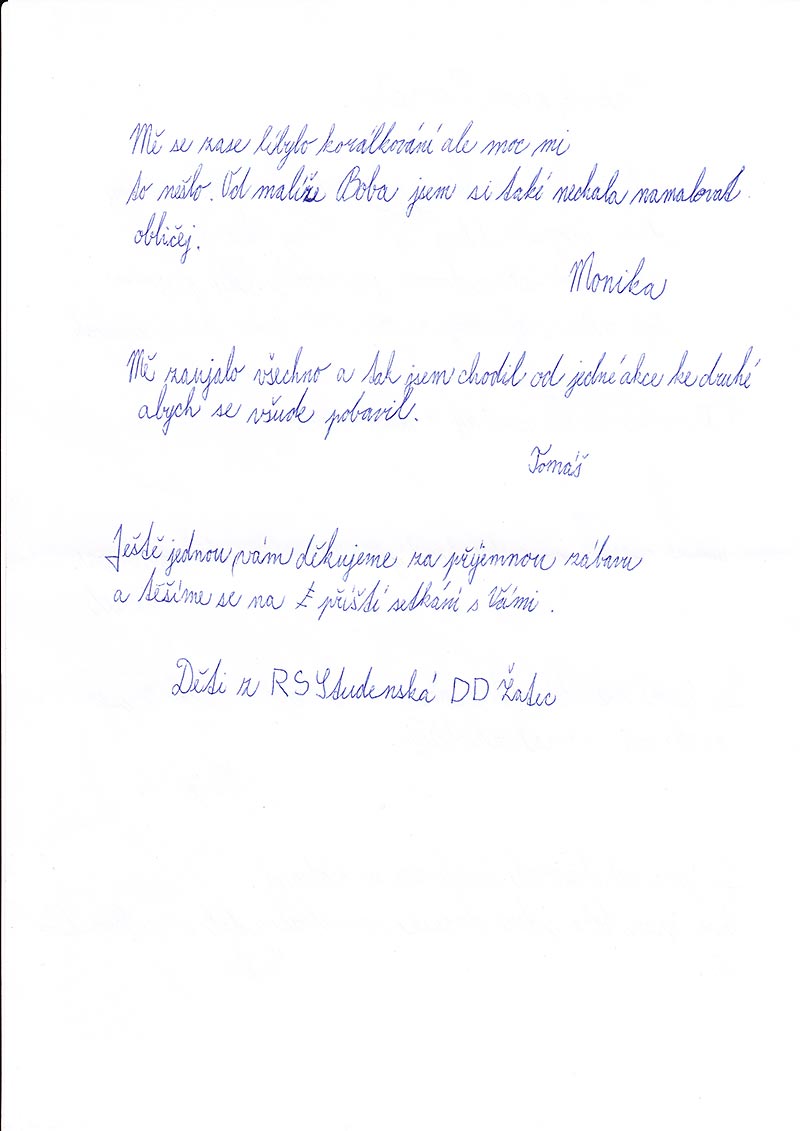 Mě se zase líbylo korálkování ale moc mi
to nešlo. Od malíře Boba jsem si také nechala namalovat
obličej.
Monika
Mě zaujalo všechno a tak jsem chodil od jedné akce ke druhé
abych se všude pobavil.
Tomáš
Ještě jednou vám děkujeme za příjemnou zábavu
a těšíme se na příští setkání s Vámi.
Děti z RS Studenská DD Žatec